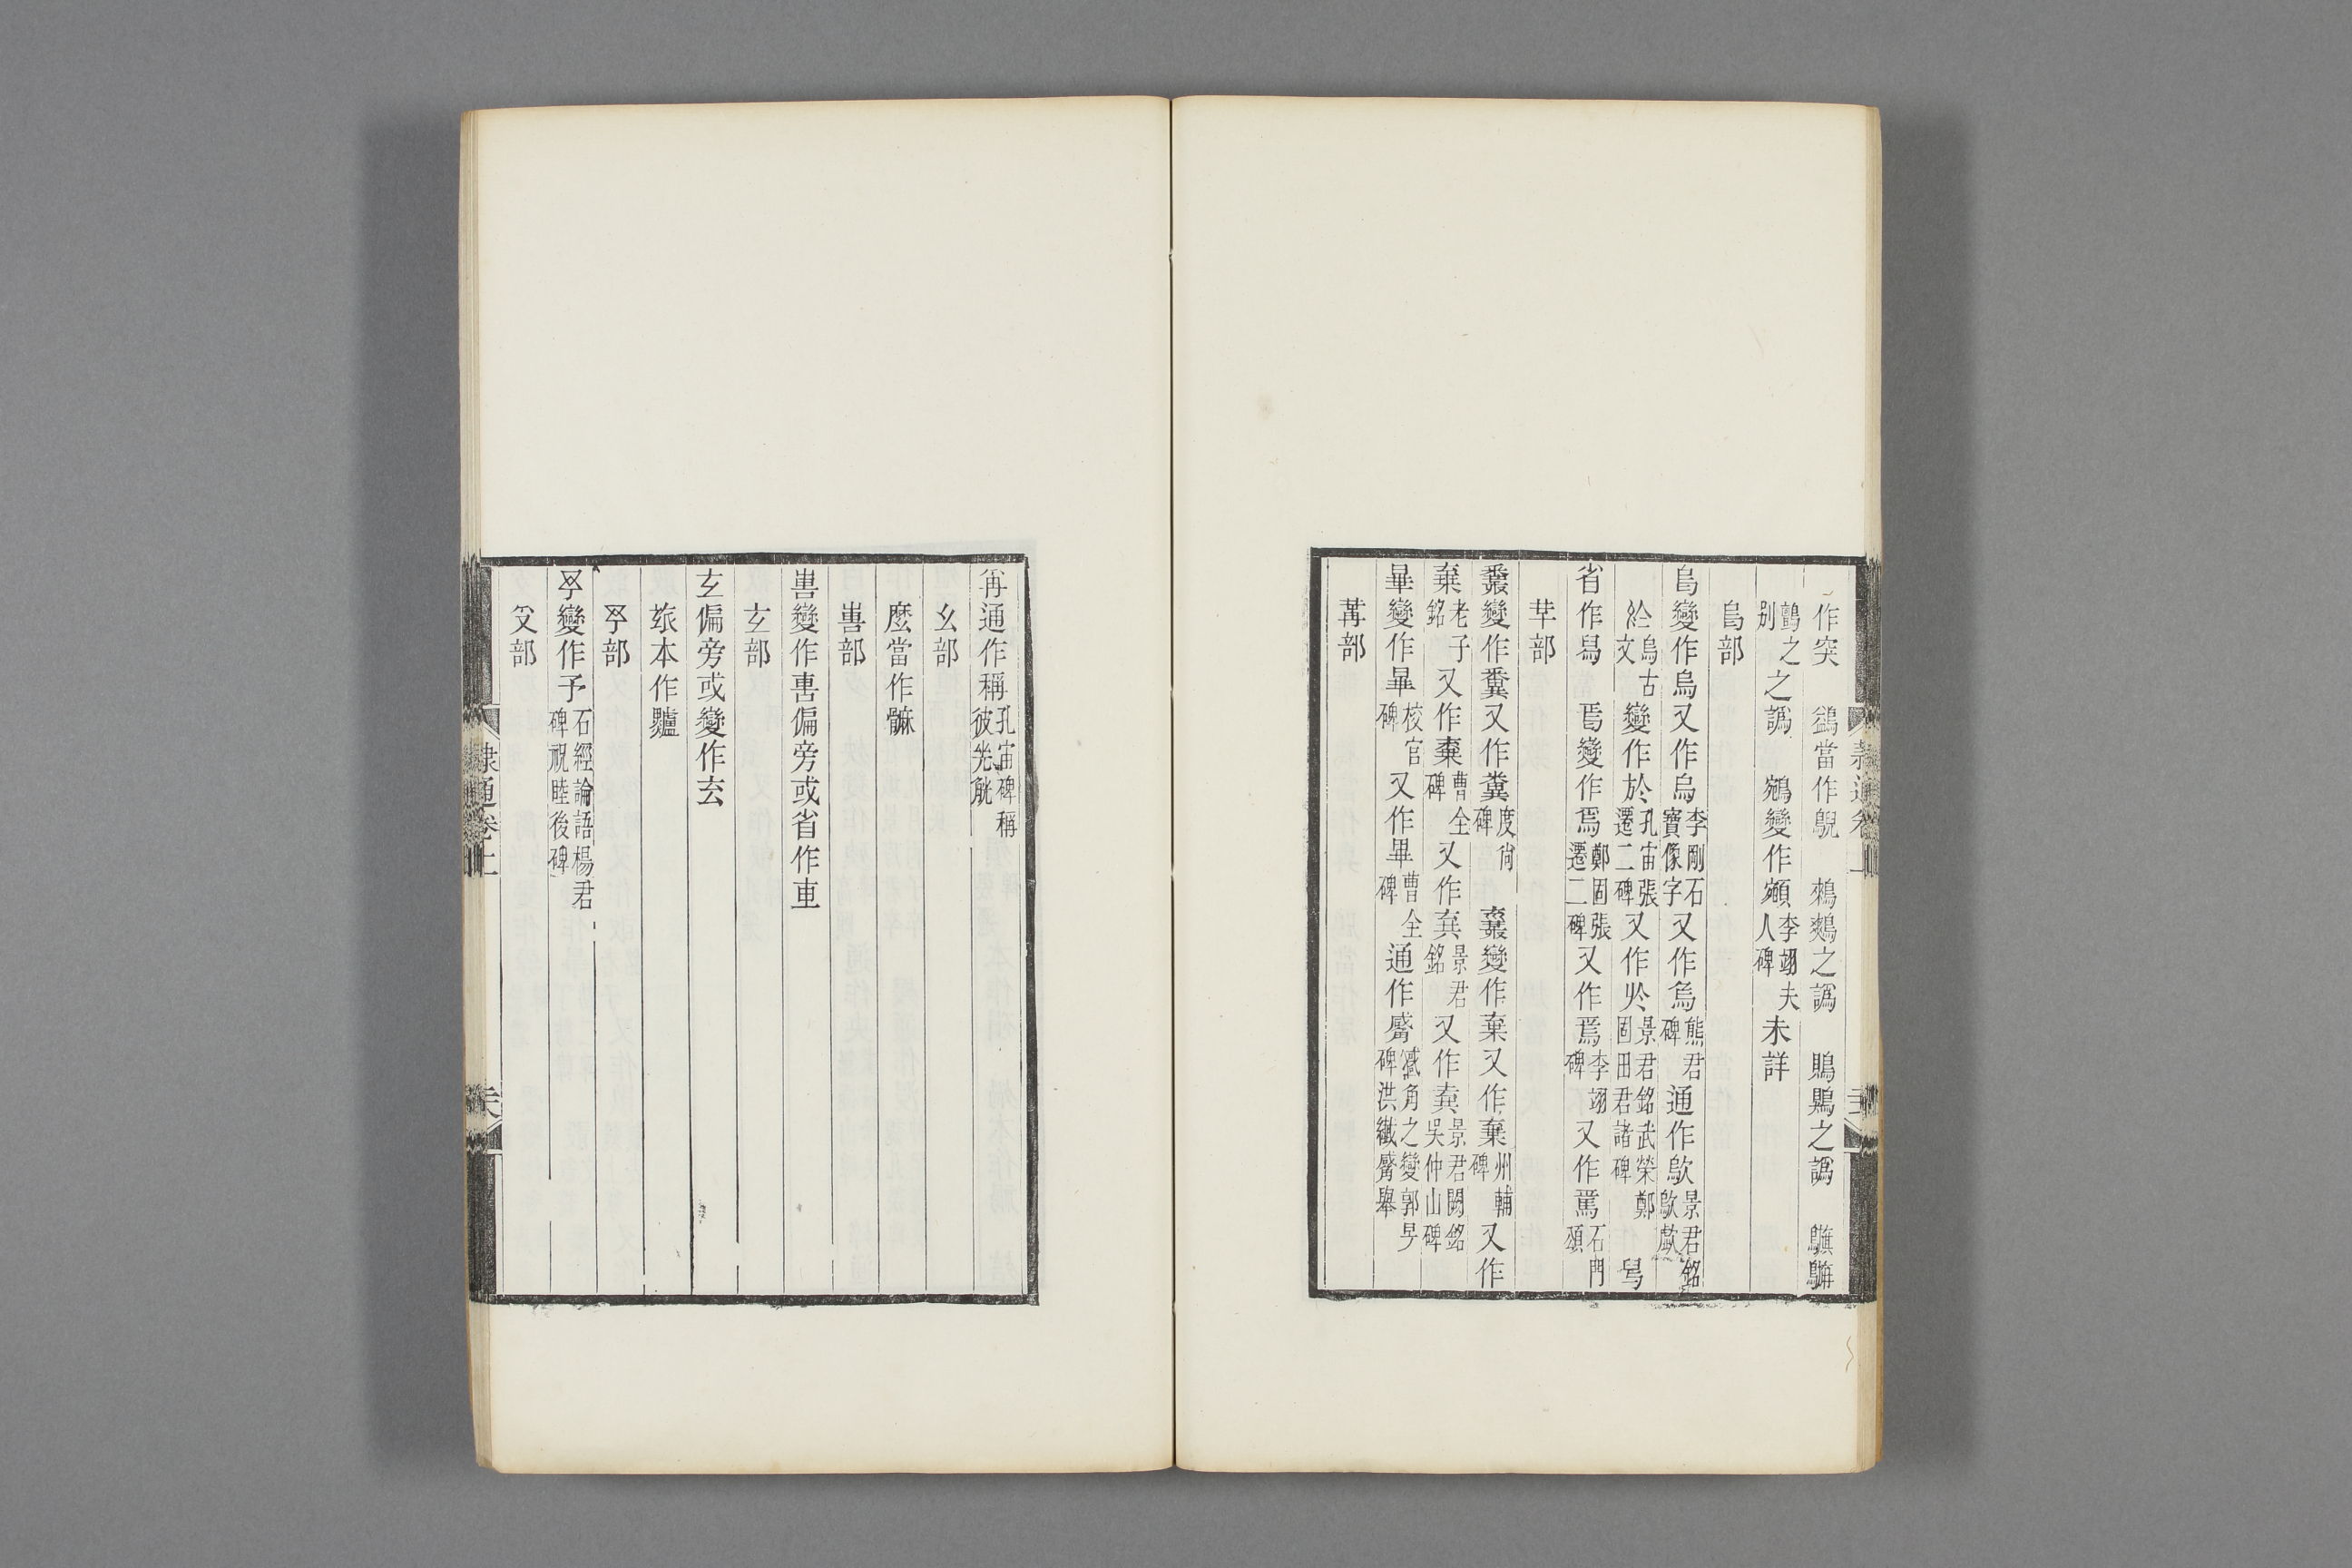 作突　鷁當作鶃　鶈鷄之譌　鵙鶪之譌
之譌　鵷變作　李翊夫人碑　未詳
烏部
烏變作烏又作烏李剛石室像字又作　熊君碑　通作歍景君銘歍歔
烏古文變作於孔宙張遷二碑又作　景君銘武榮鄭固田君諸碑　舃
省作舄　焉變作焉鄭固張遷二碑又作焉李翊碑又作　石門頌
𠦒部
糞變作糞又作糞度尚碑　棄變作棄又作棄州輔碑又作
棄老子銘又作棄曹全碑又作　景君銘又作　景君闕銘吳仲山碑
畢變作畢校官碑又作畢曹全碑通作觱碑洪纖觱舉
冓部
爯通作稱孔宙碑稱彼兕觥
幺部
麼當作
叀部
叀變作叀偏旁或省作
玄部
玄偏旁或變作玄
玈本作黸
予部
予變作予石經論語楊君碑祝睦後碑
𠬪部
隸通卷上